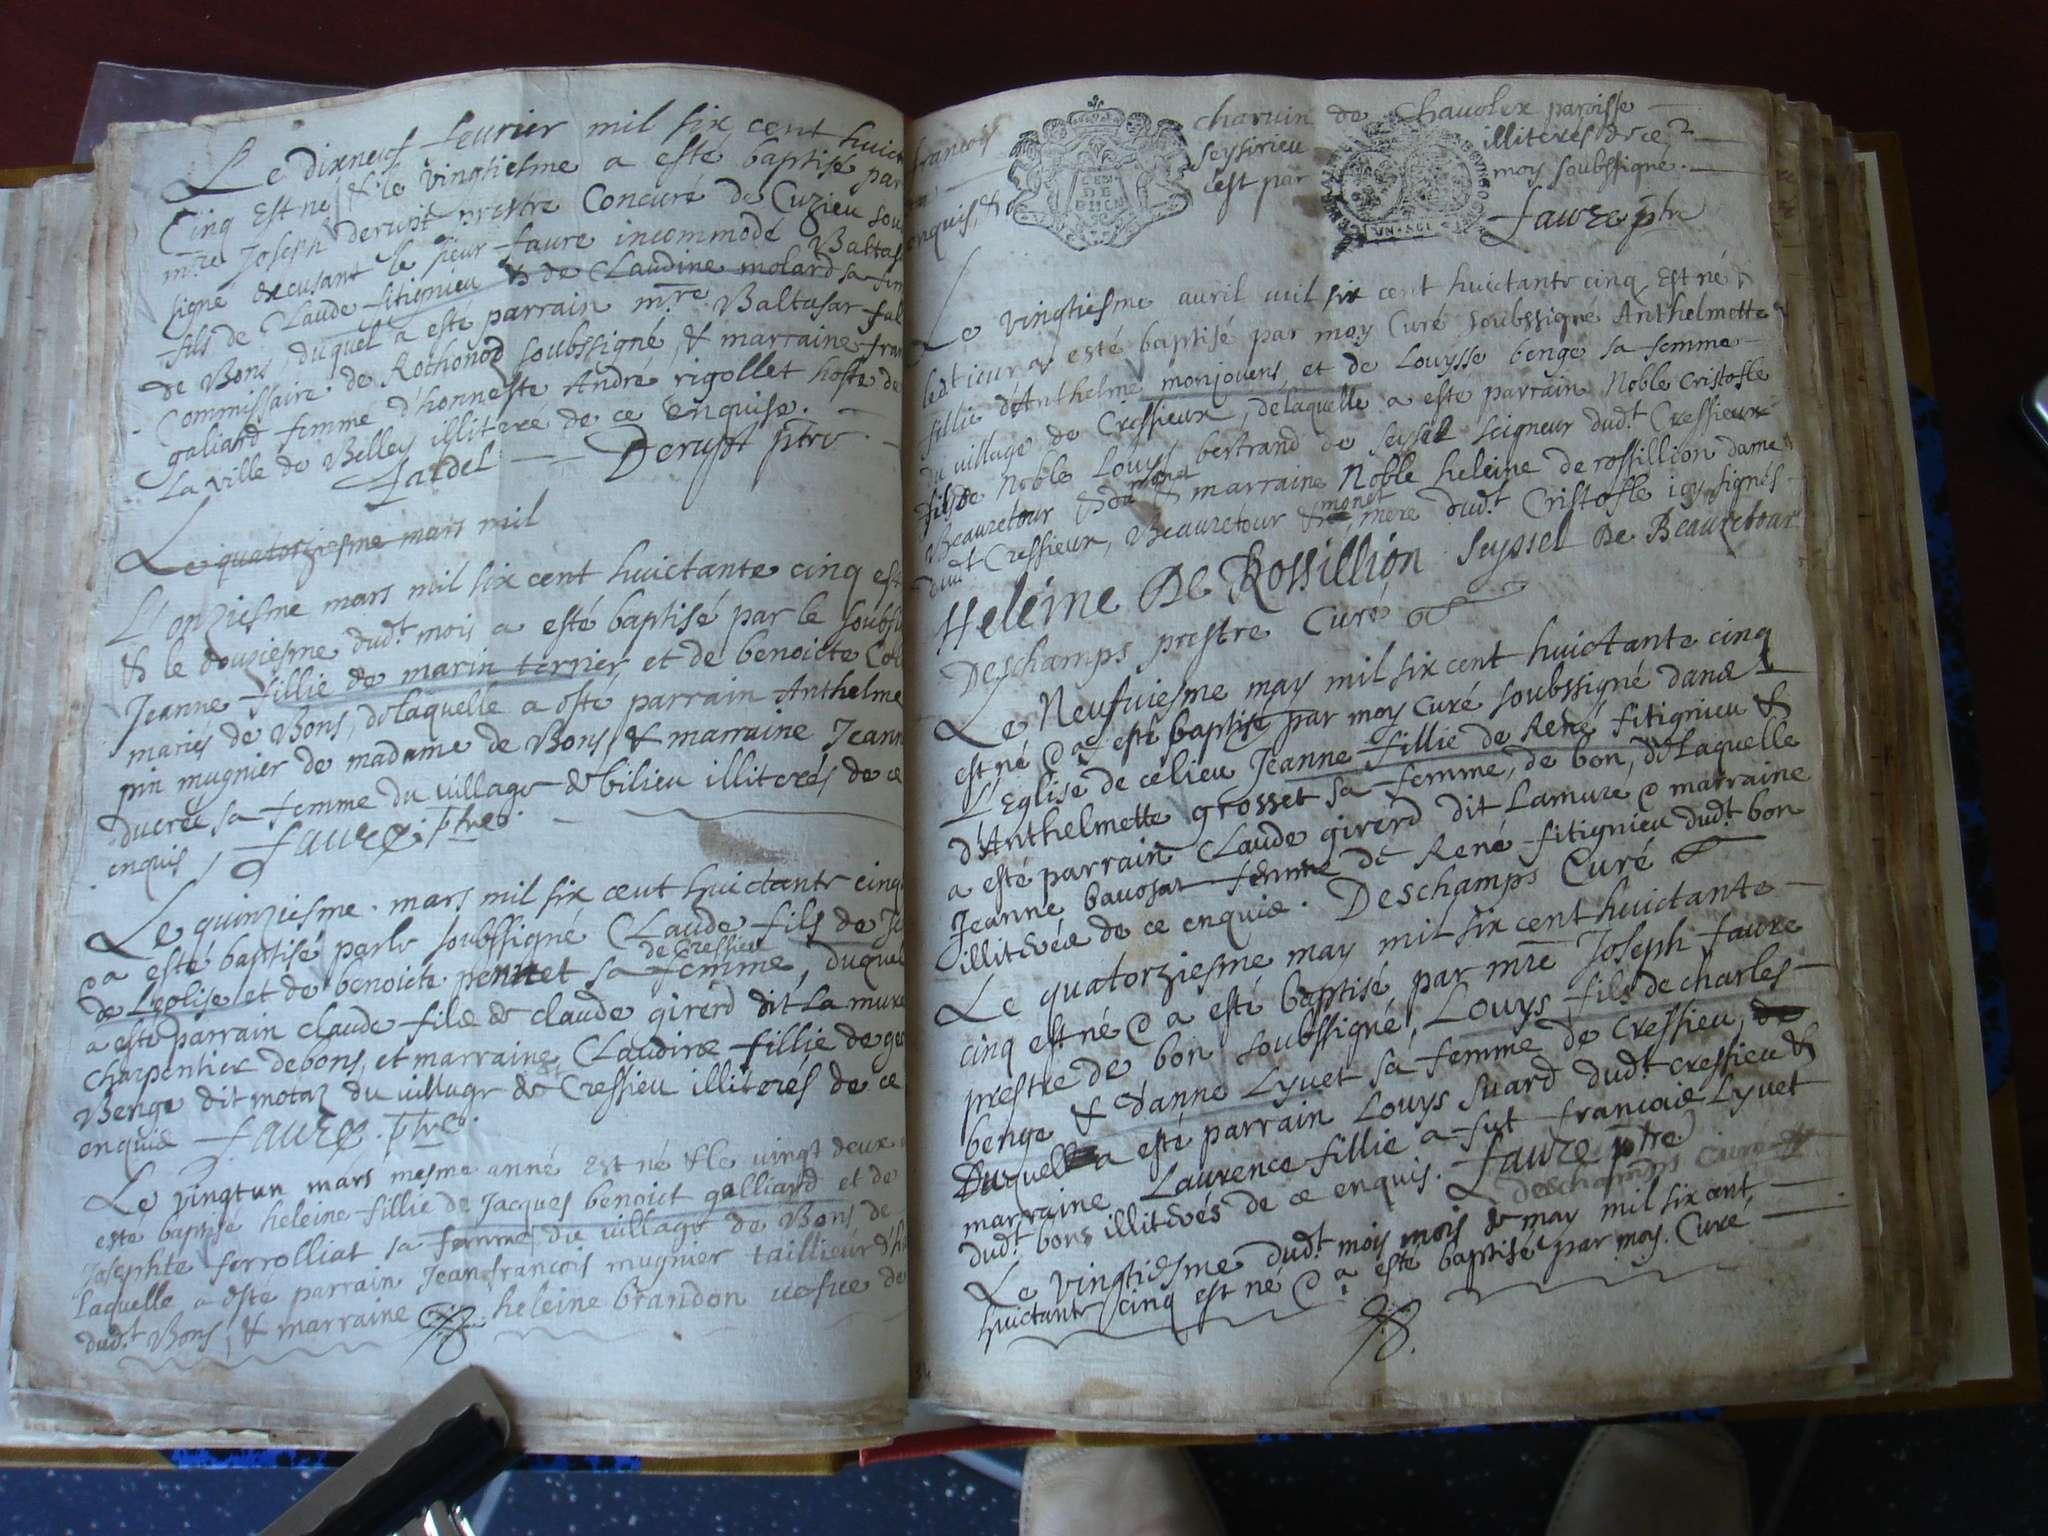 Le dixneuf feurier mil six cent huict
Cinq Est né & le vingtiesme a esté baptisé par
mre Joseph derupt prestre Concuré de Cuzieu sou
signé excusant le sieur faure incommodé Baltas
fils de Claude fitignieu & de Claudine molard sa fem
de Bons duquel a esté parrain mre Baltasar fal
Commissaire de Rochonod soubssigné, & marraine fran
galiard femme d'honneste André rigollet hoste de
La ville de Belley illiteré de ce enquise.
fardel Derupt ptre
Le quatorziesme mars mil
L'onziesme mars mil six cent huictante cinq est
& le douziesme dudt mois a esté baptisé par le soubsi
Jeanne fillie de marin terrier et de benoicte
maries de Bons, delaquelle a este parrain Anthelme
pin mugnier de madame de Bons, & marraine Jeann
ducree sa femme du village de bilieu illiterés de ce
enquis, faure ptre.
Le quinziesme mars mil six ceut huictante cinq
e a esté baptisé parle soubssigné Claude fils de
de Cressieu
de Leglise et de benoicte pernet sa femme, duquel
a esté parrain claude fils de claude girerd dit La mure
charpentier de bons, et marraine Claudine fillie de
Benge dit motaz du village de Cressieu illiterés de ce
enquis faure ptre.
Le vingtun mars mesme anné Est né & le vingt deux
esté baptisé heleine fillie de Jacques benoict galliard et de
Josephte ferrolliat sa femme du village de Bons, de
Laquelle a esté parrain Jeanfrancois mugnier taillieur d'h
dudt Bons, & marraine heleine brandon uefue de
francois charuin de Chauolex paroisse
seysirieu illiteres de ce
enquis, & c'est par moy soubssigné.
faure ptre
Le vingtiesme auril mil six cent huictante cinq Est né &
ledt iour a esté baptisé par moy Curé soubssigné Anthelmette
fillie d'Anthelme monjouent et de Louysse benge sa femme
du village de Cressieux, delaquelle a este parrain Noble Cristofle
fils de Noble Louys bertrand de seyssel seigneur dudt Cressieux
Beauretour & monet & marraine Noble heleine de rossillion dame
dudt Cressieux, Beauretour & monet mere dudt Cristofle icy signés
Heleine De Rossillion Seyssel De Beauretour
Deschamps prestre Curé
Le Neufuiesme may mil six cent huictante cinq
est né e a esté baptisé par moy curé soubssigné dans
L'Eglise de celieu Jeanne fillie de René fitignieu &
d'Anthelmette grosset sa femme, de bon, delaquelle
a esté parrain Claude girerd dit Lamure e marraine
Jeanne bauosat femme de René fitignieu dudt bon
illiterés de ce enquis. Deschamps Curé
Le quatorziesme may mil six cent huictante
cinq est né e a esté baptisé par mre Joseph faure
prestre de bon soubssigné, Louys fils de charles
benge & d'anne Lyuet sa femme de Cressieu, de
Duquel a esté parrain Louys suard dudt cressieu &
marraine Laurence fillie a fut francois Lyuet
dudt bons illiterés de ce enquis. faure ptre
deschamps curé
Le vingtiesme dudt mois mois de may mil six cent
huictante cinq est né e a esté baptisé par moy Curé